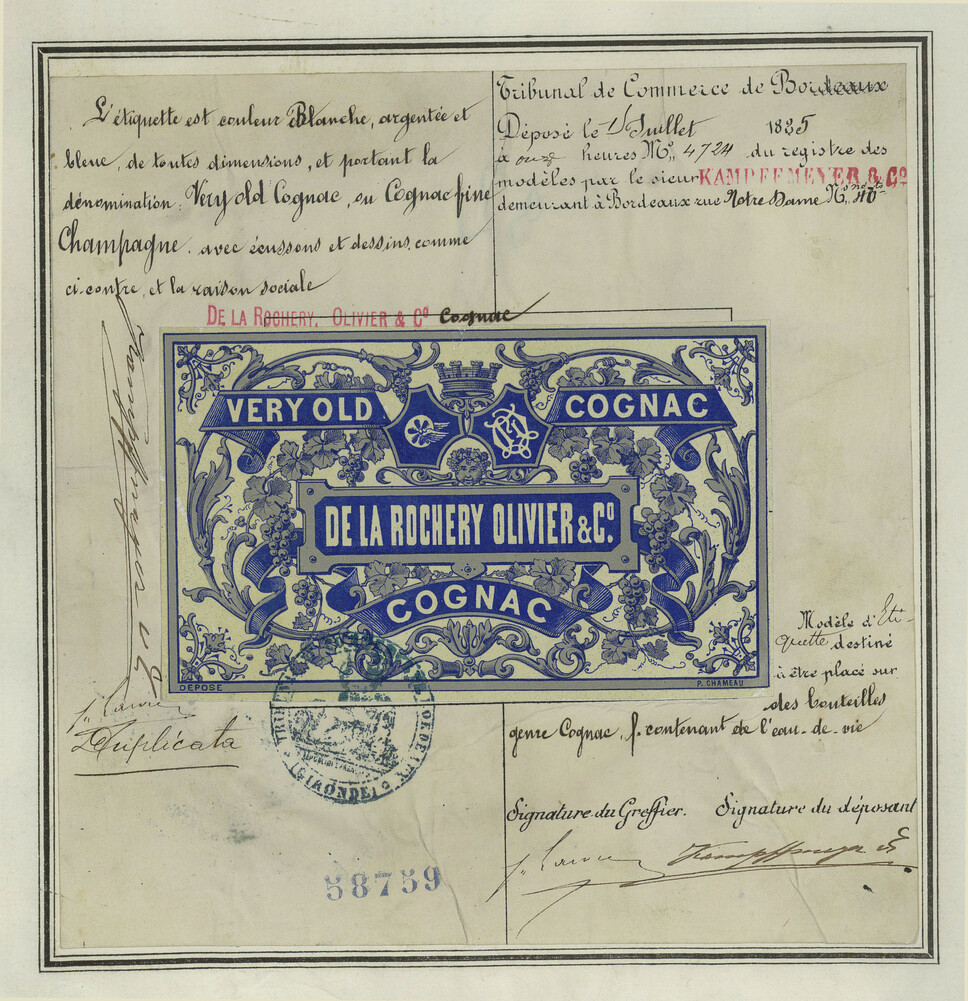 L'étiquette est couleur Blanche, argentée et
bleue, de toutes dimensions, et portant la
dénomination: Very old Cognac, ou Cognac fine
Champagne. avec écussons et dessins, comme
ci-contre, et la raison sociale
DE LA ROCHERY, OLIVIER & Cº Cognac
Tribunal de Commerce de Bordeaux
Déposé le Juillet 1885
à onze heures Nº, 4724 du registre des
modèles par le sieur KAMPFFMEYER & Cº
demeurant à Bordeaux rue Notre Dame Nº,
VERY OLD
COGNAC
DE LA ROCHERY OLIVIER & Cº.
COGNAC
DEPOSÉ
P. CHAMEAU
Kampffmeyer & Cº
Duplicata
GIRONDE
Modèle d'Eti-
quette destiné
à être placé sur
des bouteilles
genre Cognac, f. contenant de l'eau-de-vie
Signature du Greffier. Signature du déposant
Kampffmeyer & Cº
58759